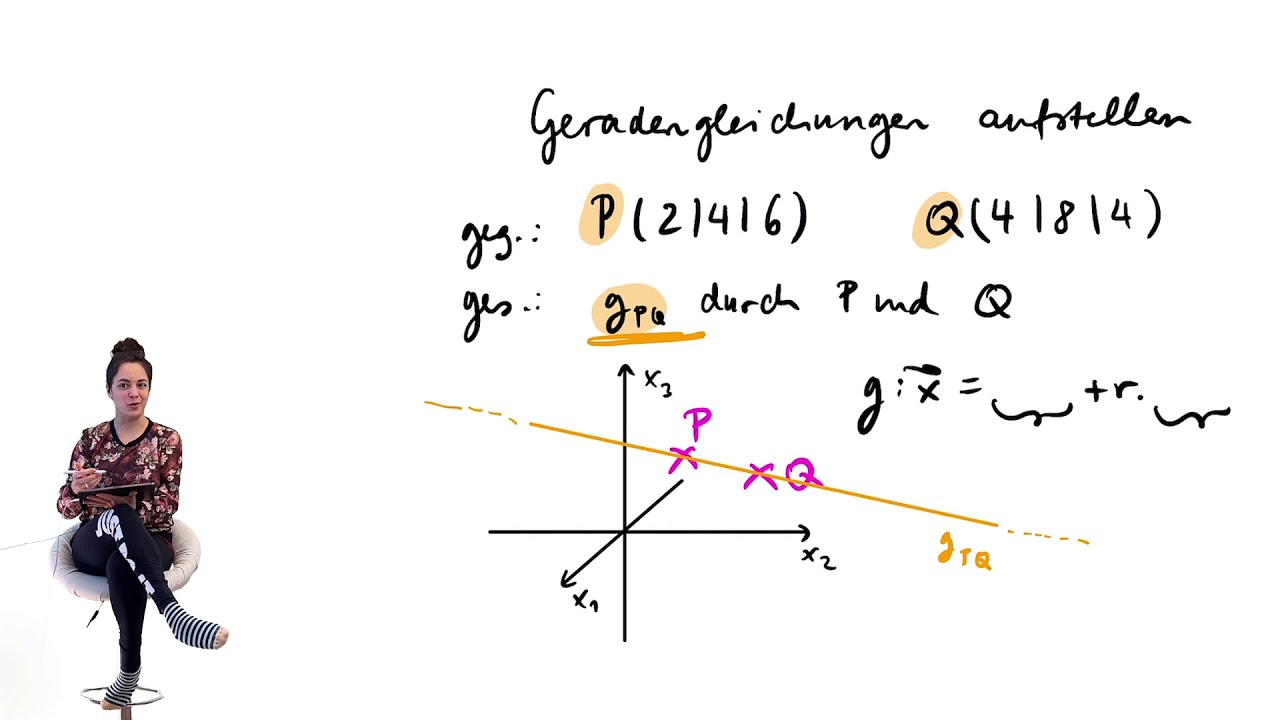 Geradengleichungen aufstellen
geg.: P(2|4|6) Q(4|8|4)
ges.: g_PQ durch P und Q
g: x⃗ = + r.
x₃
P
Q
x₂
g_PQ
x₁